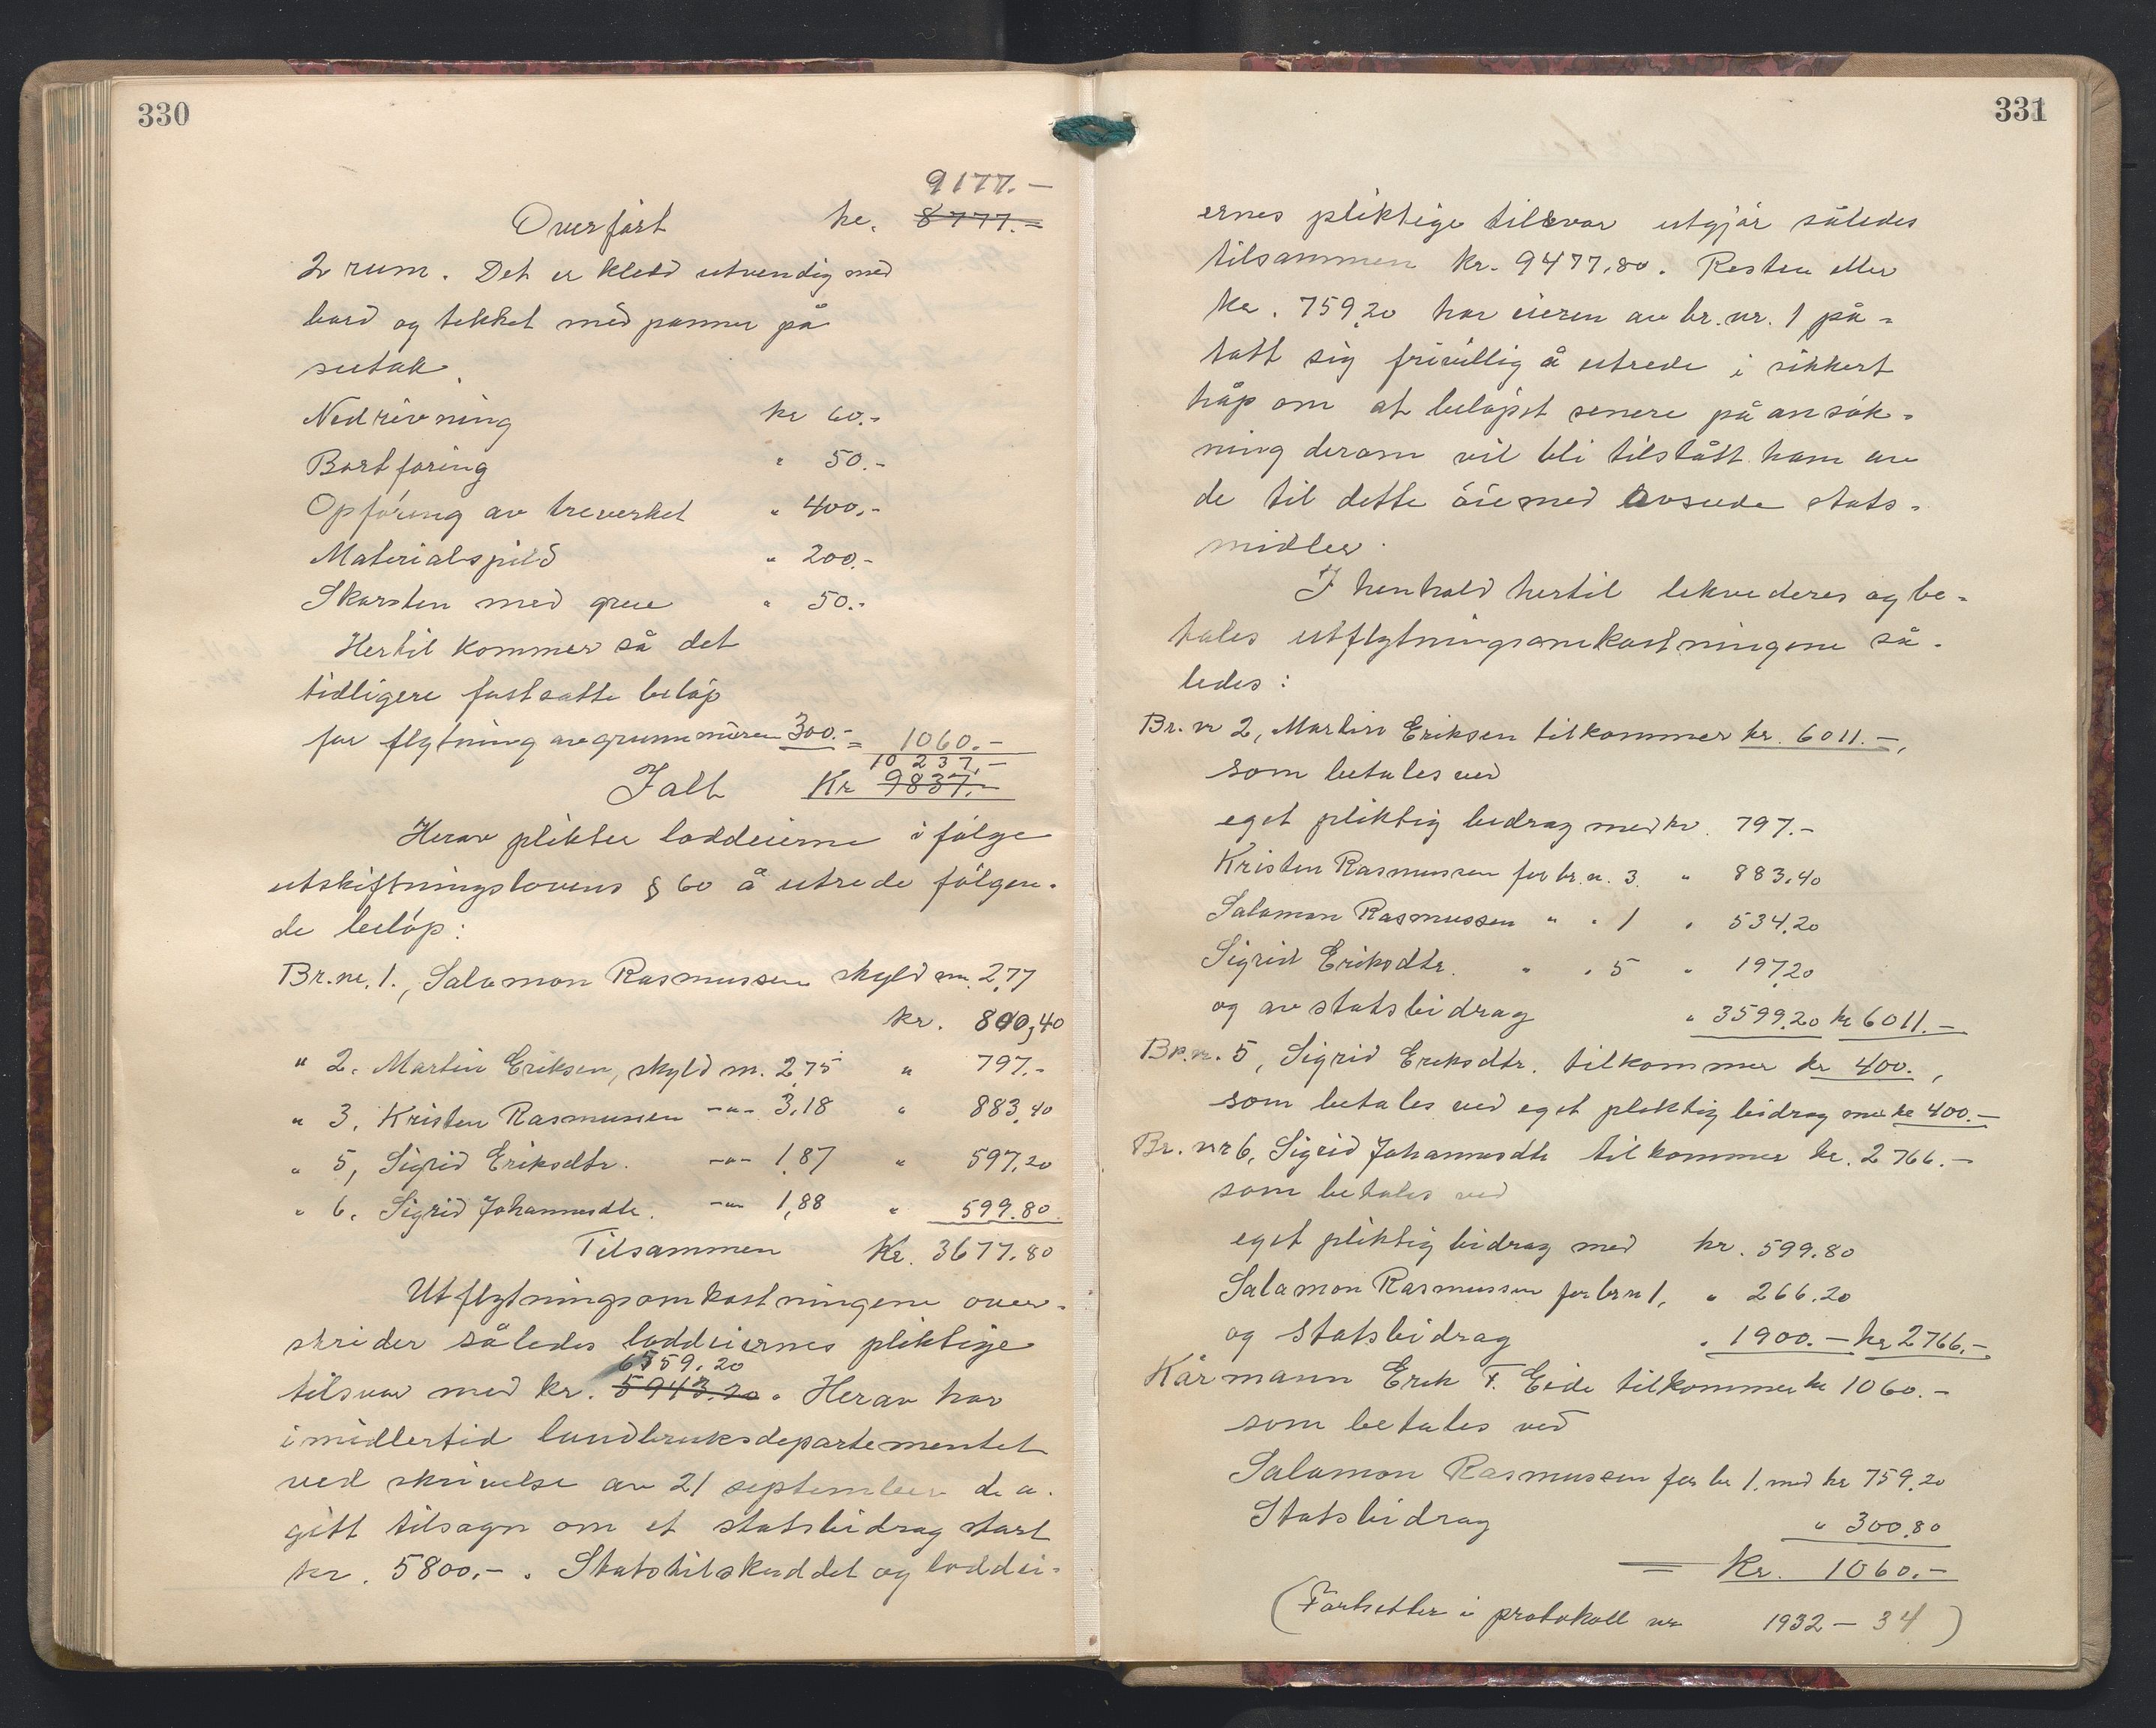 330
9177.-
Overført kr. 8777.-
2 rum. Det er kledd utvendig med
bord og tekket med panner på
sutak.
Nedrivning kr 60.-
Bortføring " 50.-
Opføring av treverket " 400.-
Materialspild " 200.-
Skorsten med grue " 50.-
Hertil kommer så det
tidligere fastsatte beløp
for flytning av grunnmuren 300.- = 1060.-
10 237.-
Ialt Kr 9837.-
Herav plikter loddeierne i følge
utskiftningslovens § 60 å utrede følgen-
de beløp:
Br.nr. 1., Salamon Rasmussen skyld m. 2,77
kr. 800,40
" 2. Martin Eriksen, skyld m. 2,75 " 797.-
" 3. Kristen Rasmussen -"- 3,18 " 883,40
" 5, Sigrid Eriksdtr. -"- 1,87 " 597,20
" 6. Sigrid Johannesdtr. -"- 1,88 " 599.80
Tilsammen Kr. 3677.80
Utflytningsomkostningene over-
skrider således loddeiernes pliktige
6559.20
tilsvar med kr. 5943.20. Herav har
imidlertid landbruksdepartementet
ved skrivelse av 21 september d. a.
gitt tilsagn om et statsbidrag stort
kr. 5800.-. Statstilskuddet og loddei-
331
ernes pliktige tilsvar utgjør således
tilsammen kr. 9477,80. Resten eller
kr. 759,20 har eieren av br. nr. 1 på-
tatt sig frivillig å utrede i sikkert
håp om at beløpet senere på ansøk-
ning derom vil bli tilstått ham av
de til dette øiemed avsedde stats-
midler.
I henhold hertil likvideres og be-
tales utflytningsomkostningene så-
ledes:
Br. nr 2, Martin Eriksen tilkommer kr. 6011.-,
som betales ved
eget pliktig bidrag med kr. 797.-
Kristen Rasmussen for br. nr. 3. " 883,40
Salamon Rasmussen " " 1 " 534,20
Sigrid Eriksdtr. " " 5 " 197,20
og av statsbidrag " 3599,20 kr 6011.-
Br. nr. 5, Sigrid Eriksdtr. tilkommer kr 400.,
som betales ved eget pliktig bidrag med kr 400.-
Br. nr 6, Sigrid Johannesdtr tilkommer kr. 2766.-
som betales ved
eget pliktig bidrag med kr. 599.80
Salamon Rasmussen for br nr 1, " 266.20
og statsbidrag " 1900.- kr 2766.-
Kårmann Erik T. Eide tilkommer kr 1060.-
som betales ved
Salamon Rasmussen for br 1. med kr 759,20
Statsbidrag " 300,80
= Kr. 1060.-
(Fortsetter i protokoll nr 1932 - 34)